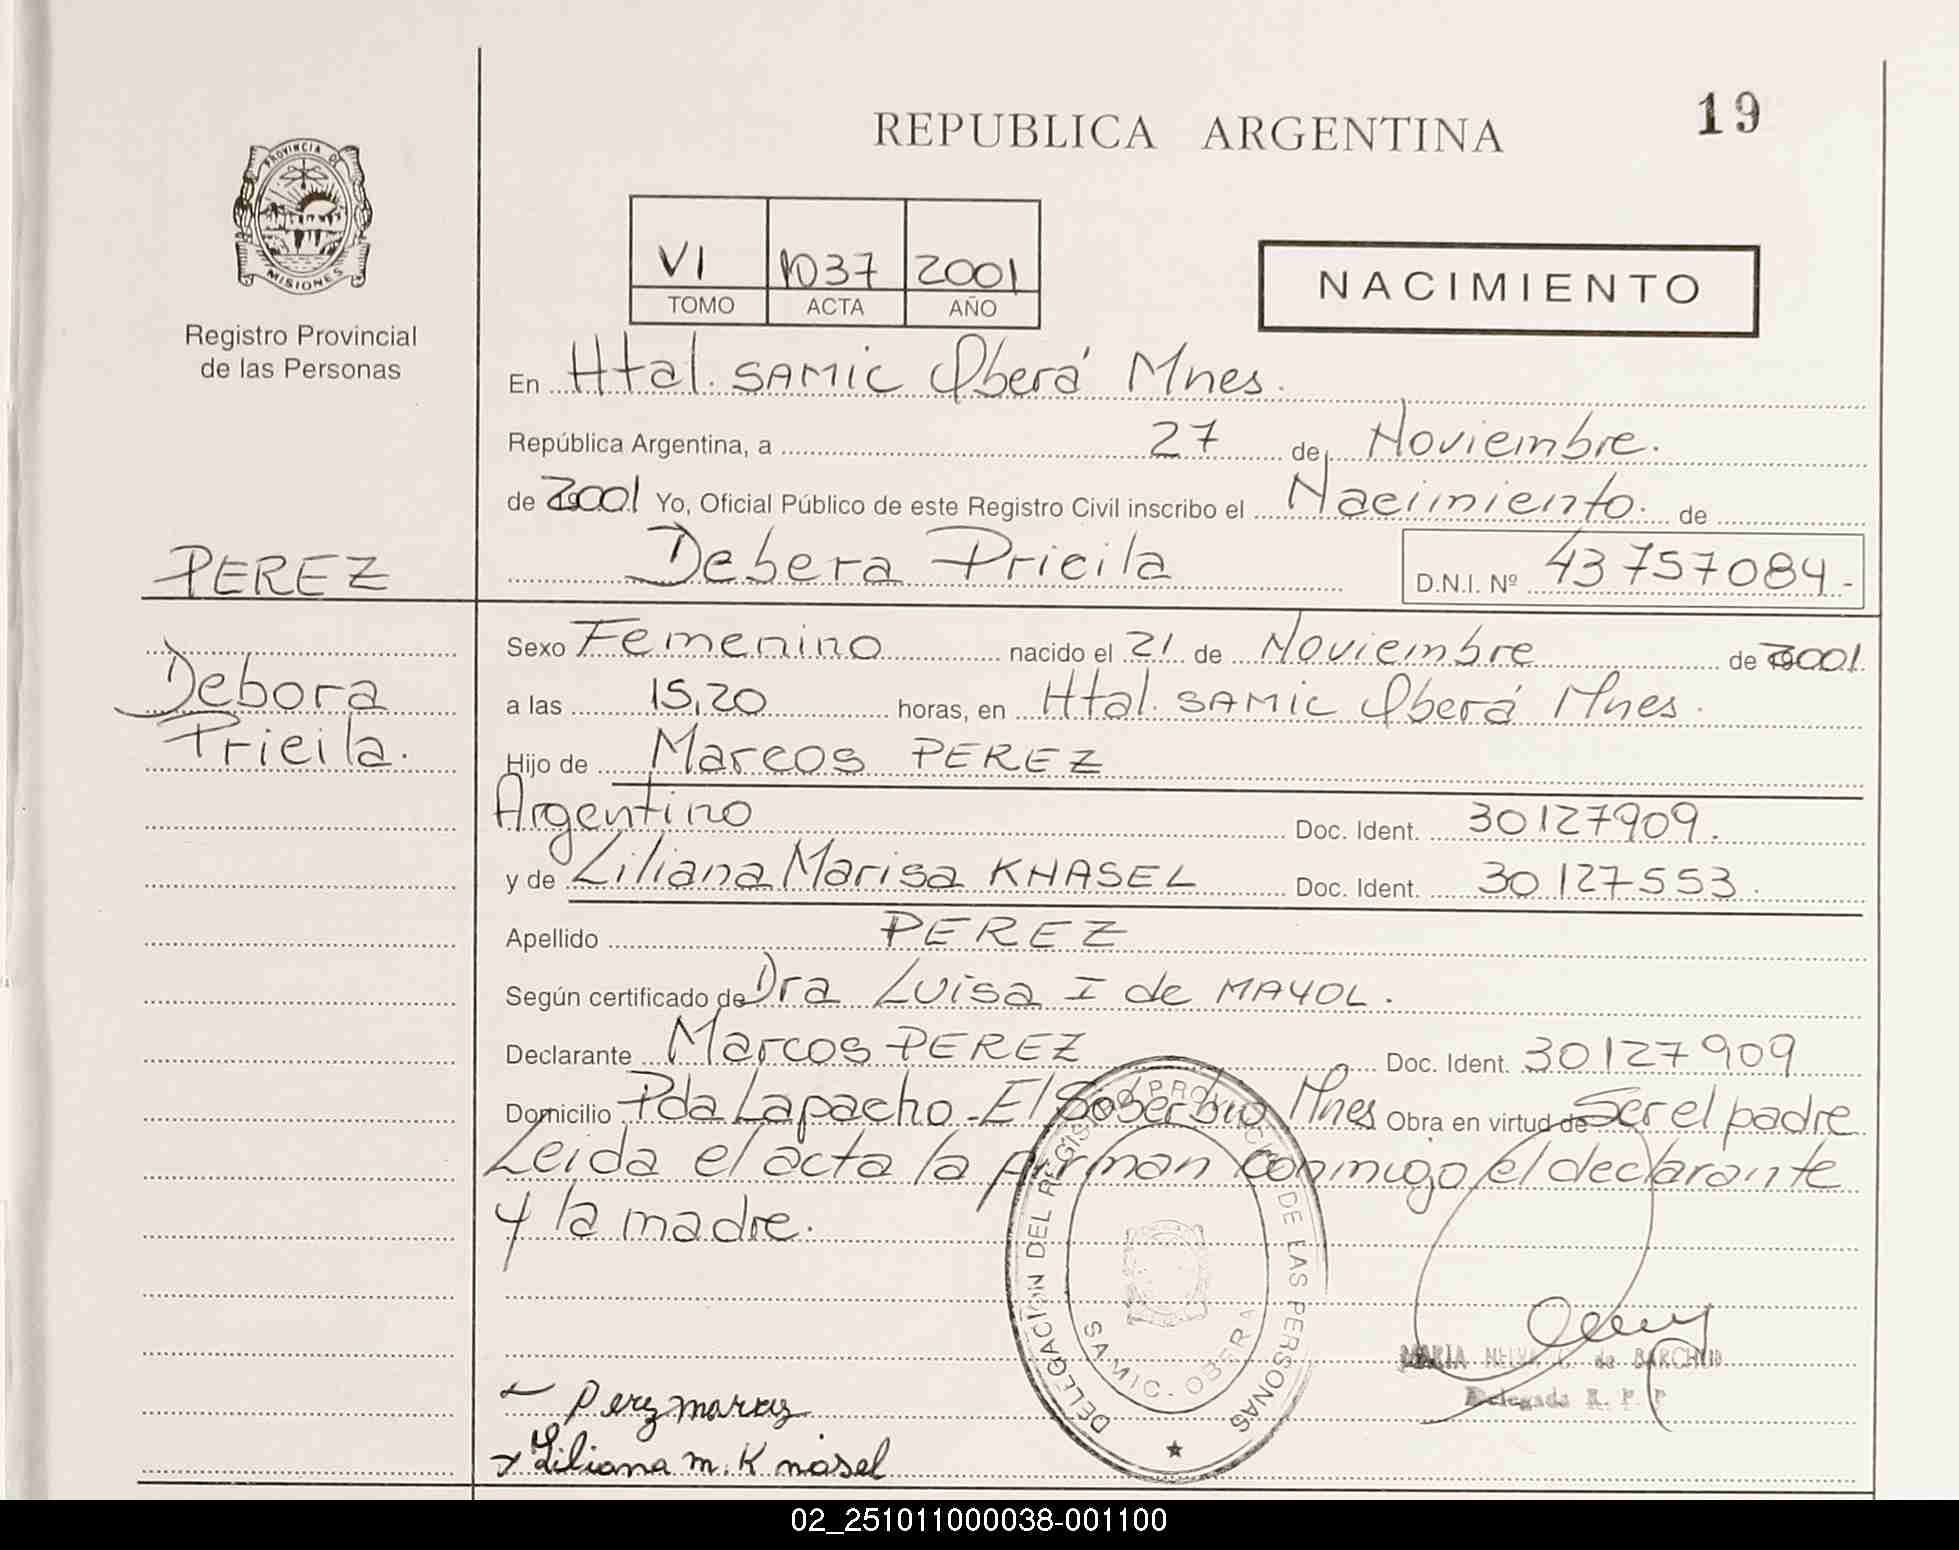 19
REPUBLICA ARGENTINA
PROVINCIA DE
MISIONES
Registro Provincial
de las Personas
VI 1037 2001
TOMO ACTA AÑO
NACIMIENTO
En Htal. SAMIC Oberá Mnes.
República Argentina, a 27 de Noviembre.
de 2001 Yo, Oficial Público de este Registro Civil inscribo el Nacimiento. de
Debera Pricila D.N.I. Nº 43757084.-
PEREZ
Debora
Pricila.
Sexo Femenino nacido el 21 de Noviembre de 2001.
a las 15,20 horas, en Htal. SAMIC Oberá Mnes.
Hijo de Marcos PEREZ
Argentino Doc. Ident. 30127909.
y de Liliana Marisa KNASEL Doc. Ident. 30.127553.
Apellido PEREZ
Según certificado de Dra Luisa I de MAYOL.
Declarante Marcos PEREZ Doc. Ident. 30127909
Domicilio Pda Lapacho - El Soberbio Mnes Obra en virtud de Ser el padre
Leida el acta la firman conmigo el declarante
y la madre.
DELEGACION DEL REGISTRO PROVINCIAL DE LAS PERSONAS
SAMIC. OBERA
MARIA NELVA C. de
Delegada R. P. P
Perez marcos
Liliana m. Knasel
02_251011000038-001100